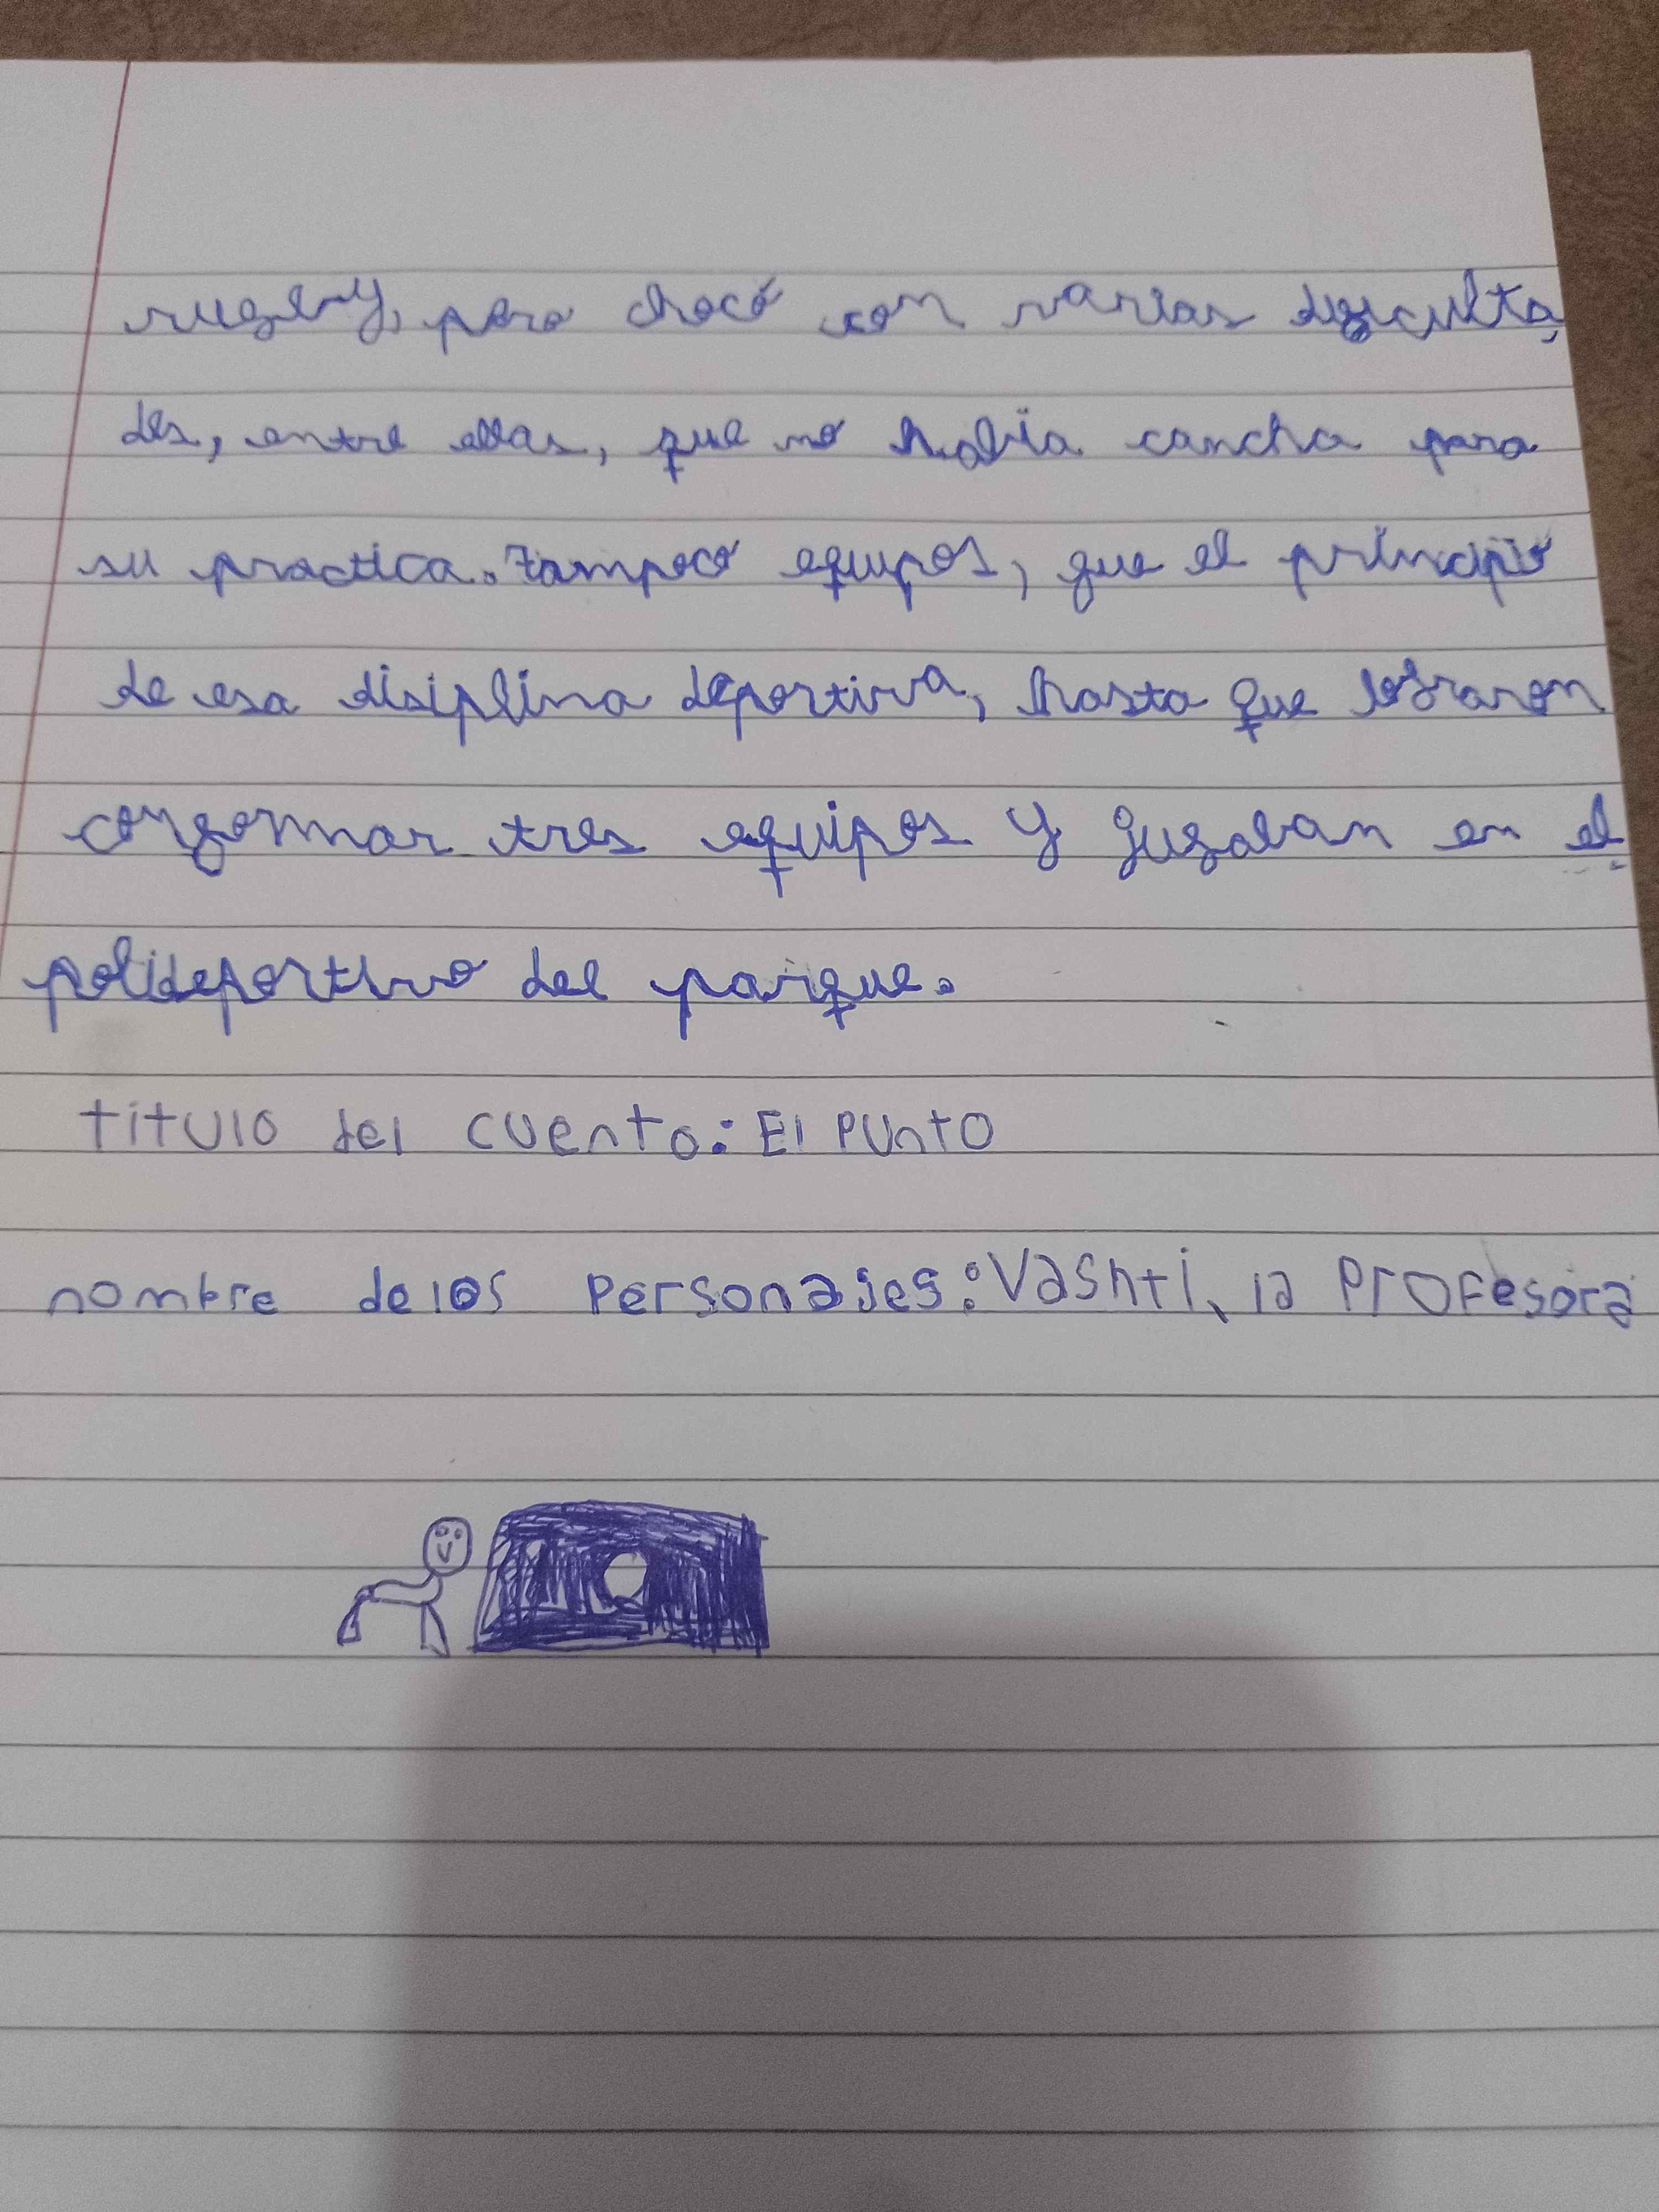 rugby, pero chocó con varias dificulta,
des, entre ellas, que no había cancha para
su practica. Tampoco equipos, que el principio
de esa disiplina deportiva, hasta que lograron
conformar tres equipos y jugaban en el
polideportivo del parque.
titulo del cuento: El punto
nombre de los personajes: Vashti, la profesora